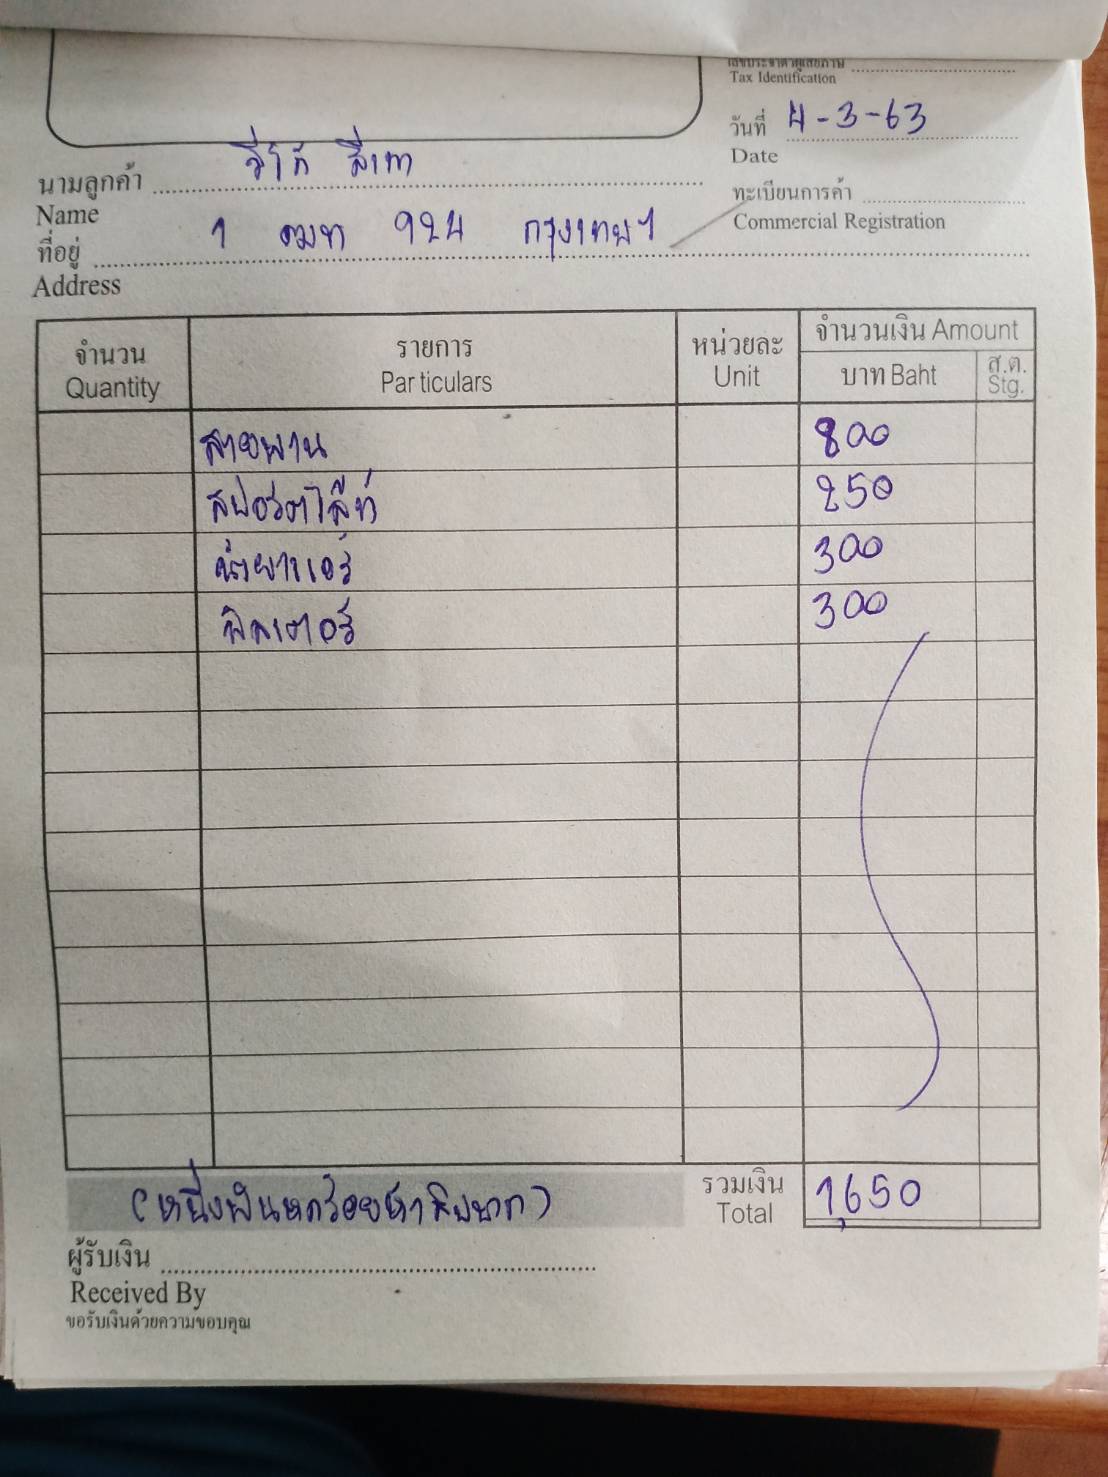 เลขประจำตัวผู้เสียภาษี
Tax Identification
วันที่ 4-3-63
Date
นามลูกค้า วีโก้ สีเทา
Name
ทะเบียนการค้า
Commercial Registration
ที่อยู่ 1 ฒฑ 924 กรุงเทพฯ
Address
จำนวน รายการ หน่วยละ จำนวนเงิน Amount
Quantity Particulars Unit บาท Baht ส.ต. Stg.
สายพาน 800
สปอร์ตไล๊ท์ 250
น้ำยาแอร์ 300
ฟิลเตอร์ 300
(หนึ่งพันหกร้อยห้าสิบบาท) รวมเงิน 1,650
Total
ผู้รับเงิน
Received By
ขอรับเงินด้วยความขอบคุณ